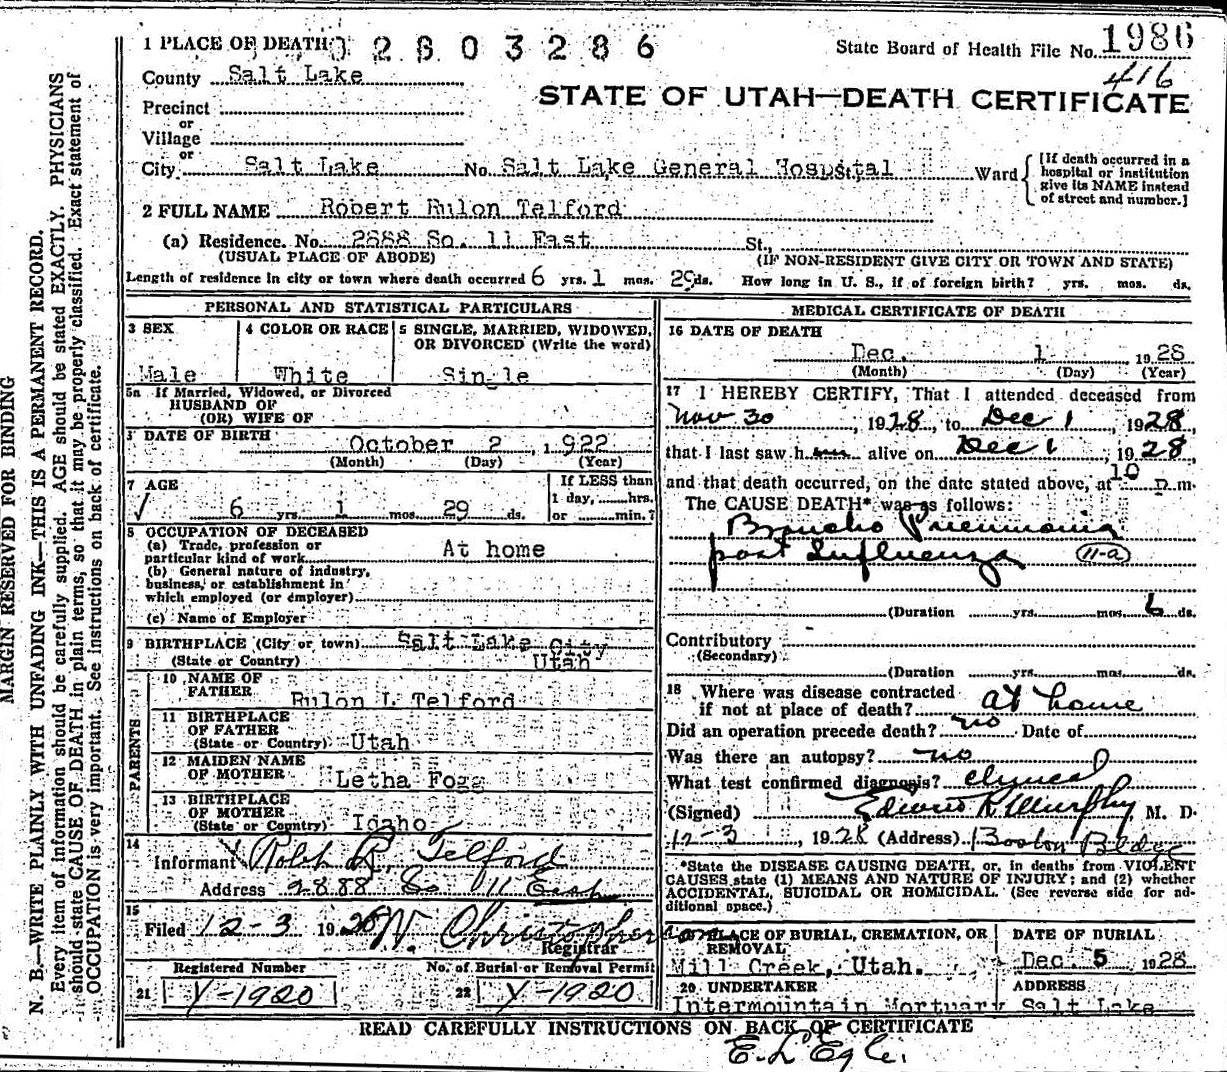 1 PLACE OF DEATH 2803286
State Board of Health File No. 1986
416
County Salt Lake
STATE OF UTAH—DEATH CERTIFICATE
Precinct
or
Village
or
City Salt Lake No. Salt Lake General Hospital Ward
[If death occurred in a
hospital or institution
give its NAME instead
of street and number.]
2 FULL NAME Robert Rulon Telford
(a) Residence. No. 2888 So. 11 East St.,
(USUAL PLACE OF ABODE) (IF NON-RESIDENT GIVE CITY OR TOWN AND STATE)
Length of residence in city or town where death occurred 6 yrs. 1 mos. 29 ds. How long in U. S., if of foreign birth? yrs. mos. ds.
PERSONAL AND STATISTICAL PARTICULARS
3 SEX
Male
4 COLOR OR RACE
White
5 SINGLE, MARRIED, WIDOWED,
OR DIVORCED (Write the word)
Single
5a If Married, Widowed, or Divorced
HUSBAND OF
(OR) WIFE OF
DATE OF BIRTH October 2, 1922
(Month) (Day) (Year)
7 AGE
6 yrs. 1 mos. 29 ds.
If LESS than
1 day, hrs.
or min.?
8 OCCUPATION OF DECEASED
(a) Trade, profession or
particular kind of work At home
(b) General nature of industry,
business, or establishment in
which employed (or employer)
(c) Name of Employer
9 BIRTHPLACE (City or town) Salt Lake City
(State or Country) Utah
PARENTS
10 NAME OF
FATHER Rulon L Telford
11 BIRTHPLACE
OF FATHER
(State or Country) Utah
12 MAIDEN NAME
OF MOTHER Letha Fogg
13 BIRTHPLACE
OF MOTHER
(State or Country) Idaho
14
Informant Telford
Address 2888 So 11 East
15
Filed 12-3 1928
Registrar
Registered Number
21 Y-1920
No. of Burial or Removal Permit
22 Y-1920
MEDICAL CERTIFICATE OF DEATH
16 DATE OF DEATH
Dec. 1 1928
(Month) (Day) (Year)
17 I HEREBY CERTIFY, That I attended deceased from
Nov 30, 1928, to Dec 1, 1928
that I last saw h im alive on Dec 1, 1928,
and that death occurred, on the date stated above, at 10 P.m.
The CAUSE DEATH* was as follows:
Broncho Pneumonia
post Influenza 11-a
(Duration yrs. mos. 6 ds.
Contributory
(Secondary)
(Duration yrs. mos. ds.
18 Where was disease contracted
if not at place of death? at home
Did an operation precede death? no Date of
Was there an autopsy? no
What test confirmed diagnosis? clinical
(Signed) Edward R Murphy M. D.
12-3, 1928 (Address) Boston Bldg
*State the DISEASE CAUSING DEATH, or, in deaths from VIOLENT
CAUSES state (1) MEANS AND NATURE OF INJURY; and (2) whether
ACCIDENTAL, SUICIDAL OR HOMICIDAL. (See reverse side for ad-
ditional space.)
PLACE OF BURIAL, CREMATION, OR
REMOVAL
Mill Creek, Utah.
DATE OF BURIAL
Dec. 5 1928
20 UNDERTAKER
Intermountain Mortuary
ADDRESS
Salt Lake
READ CAREFULLY INSTRUCTIONS ON BACK OF CERTIFICATE
MARGIN RESERVED FOR BINDING
N. B.—WRITE PLAINLY WITH UNFADING INK—THIS IS A PERMANENT RECORD.
Every item of information should be carefully supplied. AGE should be stated EXACTLY. PHYSICIANS
should state CAUSE OF DEATH in plain terms, so that it may be properly classified. Exact statement of
OCCUPATION is very important. See instructions on back of certificate.